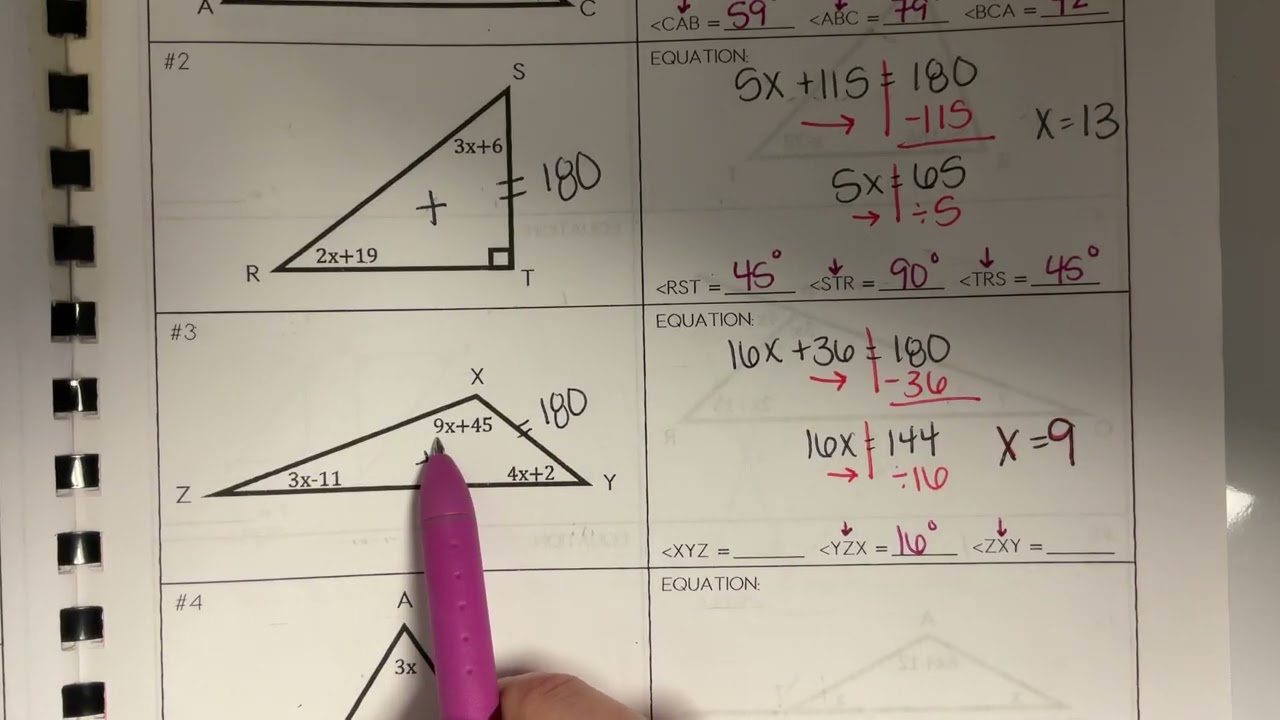 A C
<CAB = 59° <ABC = 79° <BCA = 42°
#2
S
3x+6
180
+
2x+19
R T
EQUATION:
5x +115 = 180
→ -115
x=13
5x = 65
→ ÷5
<RST = 45° <STR = 90° <TRS = 45°
#3
X
9x+45
180
3x-11 4x+2
Z Y
EQUATION:
16x +36 = 180
→ -36
16x = 144
→ ÷16
x =9
<XYZ = ______ <YZX = 16° <ZXY = ______
#4
A
3x
EQUATION: